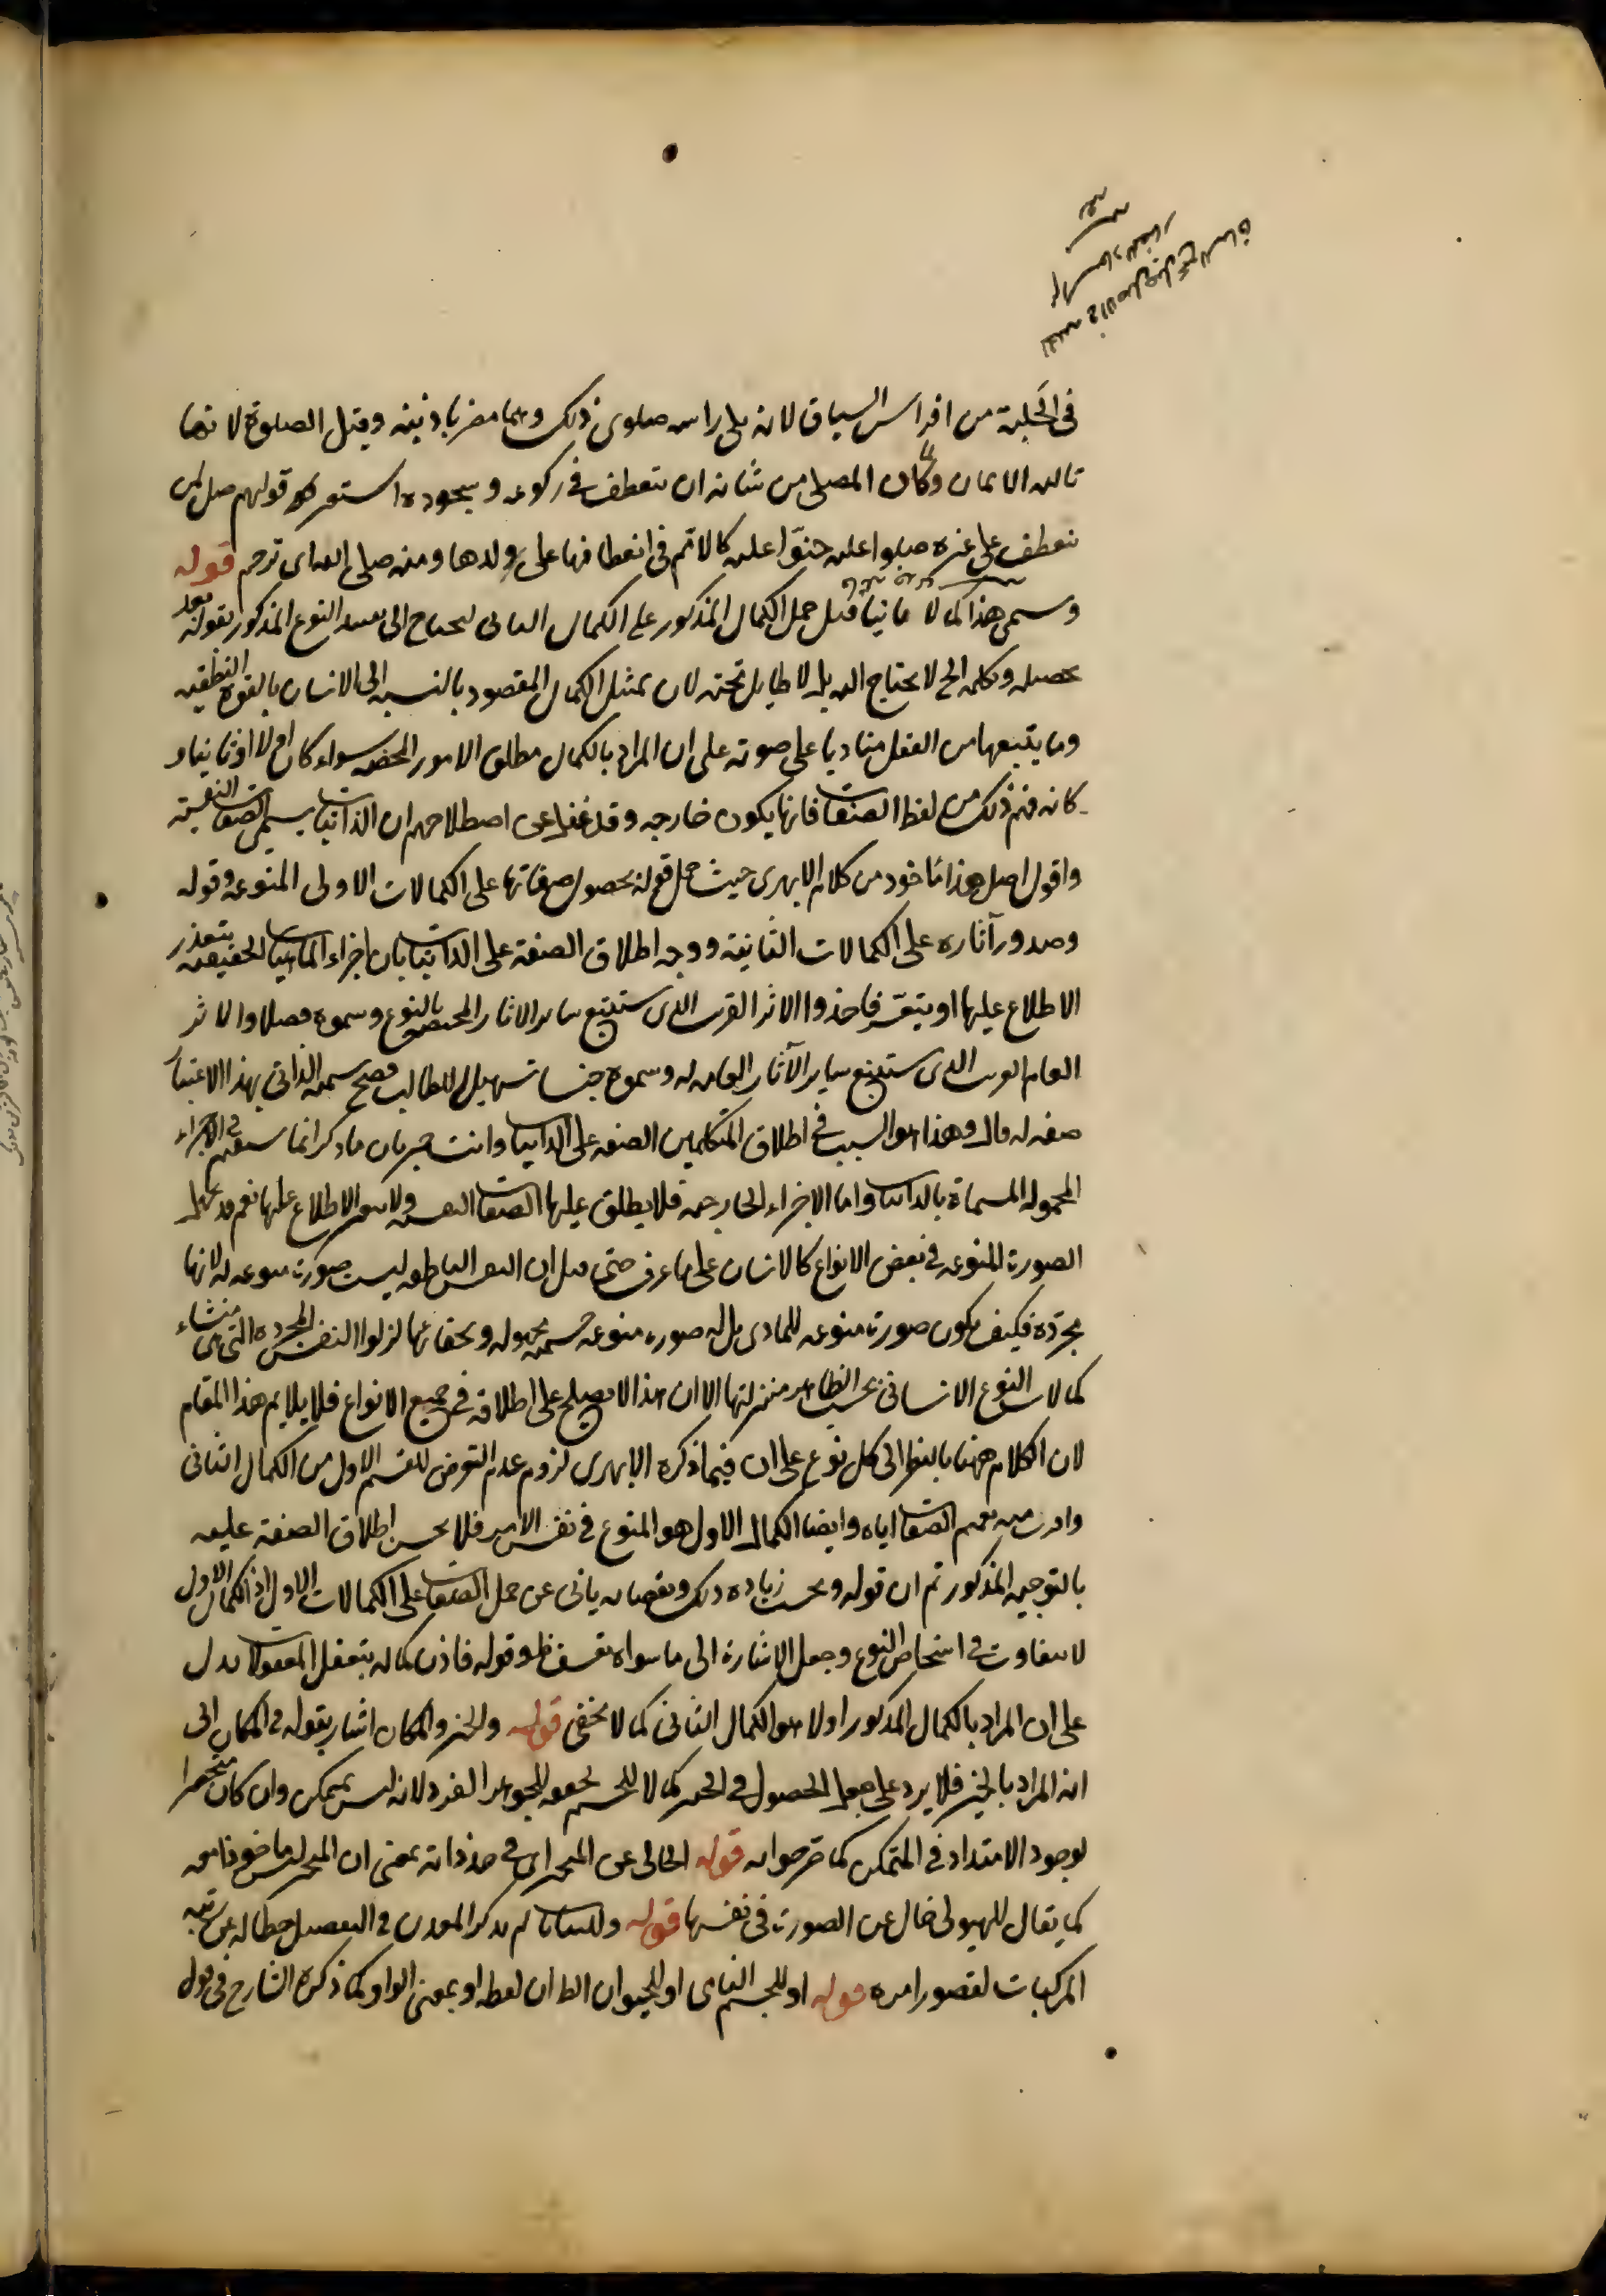 في الحلبة من افراس السباق لانه يلي راس صلوي ذلك وهما مضربا ذنبه وقيل الصلوة لانها
تالية الايمان وكان المصلي من شانه ان يتعطف في ركوعه وسجوده استعير قولهم صل لمن
تعطف على غيره صلوا عليه حنوّا عليه كالام في انعطافها على ولدها ومنه صلى الله اي ترحم قوله
وسمي هذا كمالا ثانيا قيل حمل الكمال المذكور على الكمال الثاني ليحتاج الى تقييد النوع المذكور بقوله بعد
تحصيله وتكمله الخ لا يحتاج اليه بل لا طايل تحته لان تمثيل الكمال المقصود بالنسبة الى الانسان بالقوة النطقية
وما يتبعها من العقل مناديا على صوته على ان المراد بالكمال مطلق الامور المختصة سواء كان اولا او ثانيا و
كانه فهم ذلك من لفظ الصفات فانها يكون خارجه وقد غفل عن اصطلاحهم ان الذاتيات يسمى الصفات النفسية
واقول اصل هذا ماخوذ من كلام الابهري حيث حمل قوله بحصول صفاتها على الكمالات الاولى المنوعة وقوله
وصدور آثاره على الكمالات الثانية ووجه اطلاق الصفة على الذاتيات بان اجزاء الماهيات الحقيقية يتعذر
الاطلاع عليها او يتعسر فاخذوا الاثر القريب الذي يستتبع ساير الاثار المختصة بالنوع وسموه فصلا والاثر
العام القريب الذي يستتبع ساير الآثار العامة له وسموه جنسا تسهيلا للطالب فصح تسمية الذاتي بهذا الاعتبار
صفة له قال وهذا هو السبب في اطلاق المتكلمين الصفة على الذاتيات وانت خبير بان ما ذكر انما يستقيم في الاجزاء
المحمولة المسماة بالذاتيات واما الاجزاء الخارجية فلا يطلق عليها الصفات النفسية ولا يتعسر الاطلاع عليها نعم قد يجهل
الصورة المنوعه في بعض الانواع كالانسان على ما عرف حتى قيل ان النفس الناطقة ليست صورة منوعة له لانها
مجردة فكيف يكون صورة منوعة للمادي بل له صورة منوعه جسمية مجهولة ولخفائها نزلوا النفس المجردة التي هي منشاء
كمالات النوع الانساني بحسب الظاهر منزلتها الا ان هذا لا يصلح على اطلاقه في جميع الانواع فلا يلايم هذا المقام
لان الكلام ههنا بالنظر الى كل نوع على ان فيما ذكره الابهري لزوم عدم التعرض للقسم الاول من الكمال الثاني
وادرت منه تعميم الصفات اياه وايضا الكمال الاول هو المنوع في نفس الامر فلا يحسن اطلاق الصفة عليه
بالتوجيه المذكور ثم ان قوله وبحسب زياده ذلك ونقصانه يابى عن حمل الصفات على الكمالات الاول اذ الكمال الاول
لا يتفاوت في اشخاص النوع وجعل الاشارة الى ما سواه تعسف ظ وقوله فاذن كماله بتعقل المعقولات يدل
على ان المراد بالكمال المذكور اولا هو الكمال الثاني كما لا يخفى قوله والحيز والمكان اشار بقوله في المكان الى
انه المراد بالحيز فلا يرد على جعل الحصول في الحيز كمالا للجسم تحققه للجوهر الفرد لانه ليس بمتمكن وان كان متحيزا
لوجود الامتداد في المتمكن كما صرحوا به قوله الخالي عن المتحيز اي في حد ذاته بمعنى ان المتحيز ليس ماخوذا معه
كما يقال للهيولى خال عن الصورة في نفسها قوله وللنبات لم يذكر المعدن في التفصيل حطا له عن رتبة
المركبات لقصور امره قوله او للجسم النامي او للحيوان الظ ان لفظه او بمعنى الواو كما ذكره الشارح في قوله